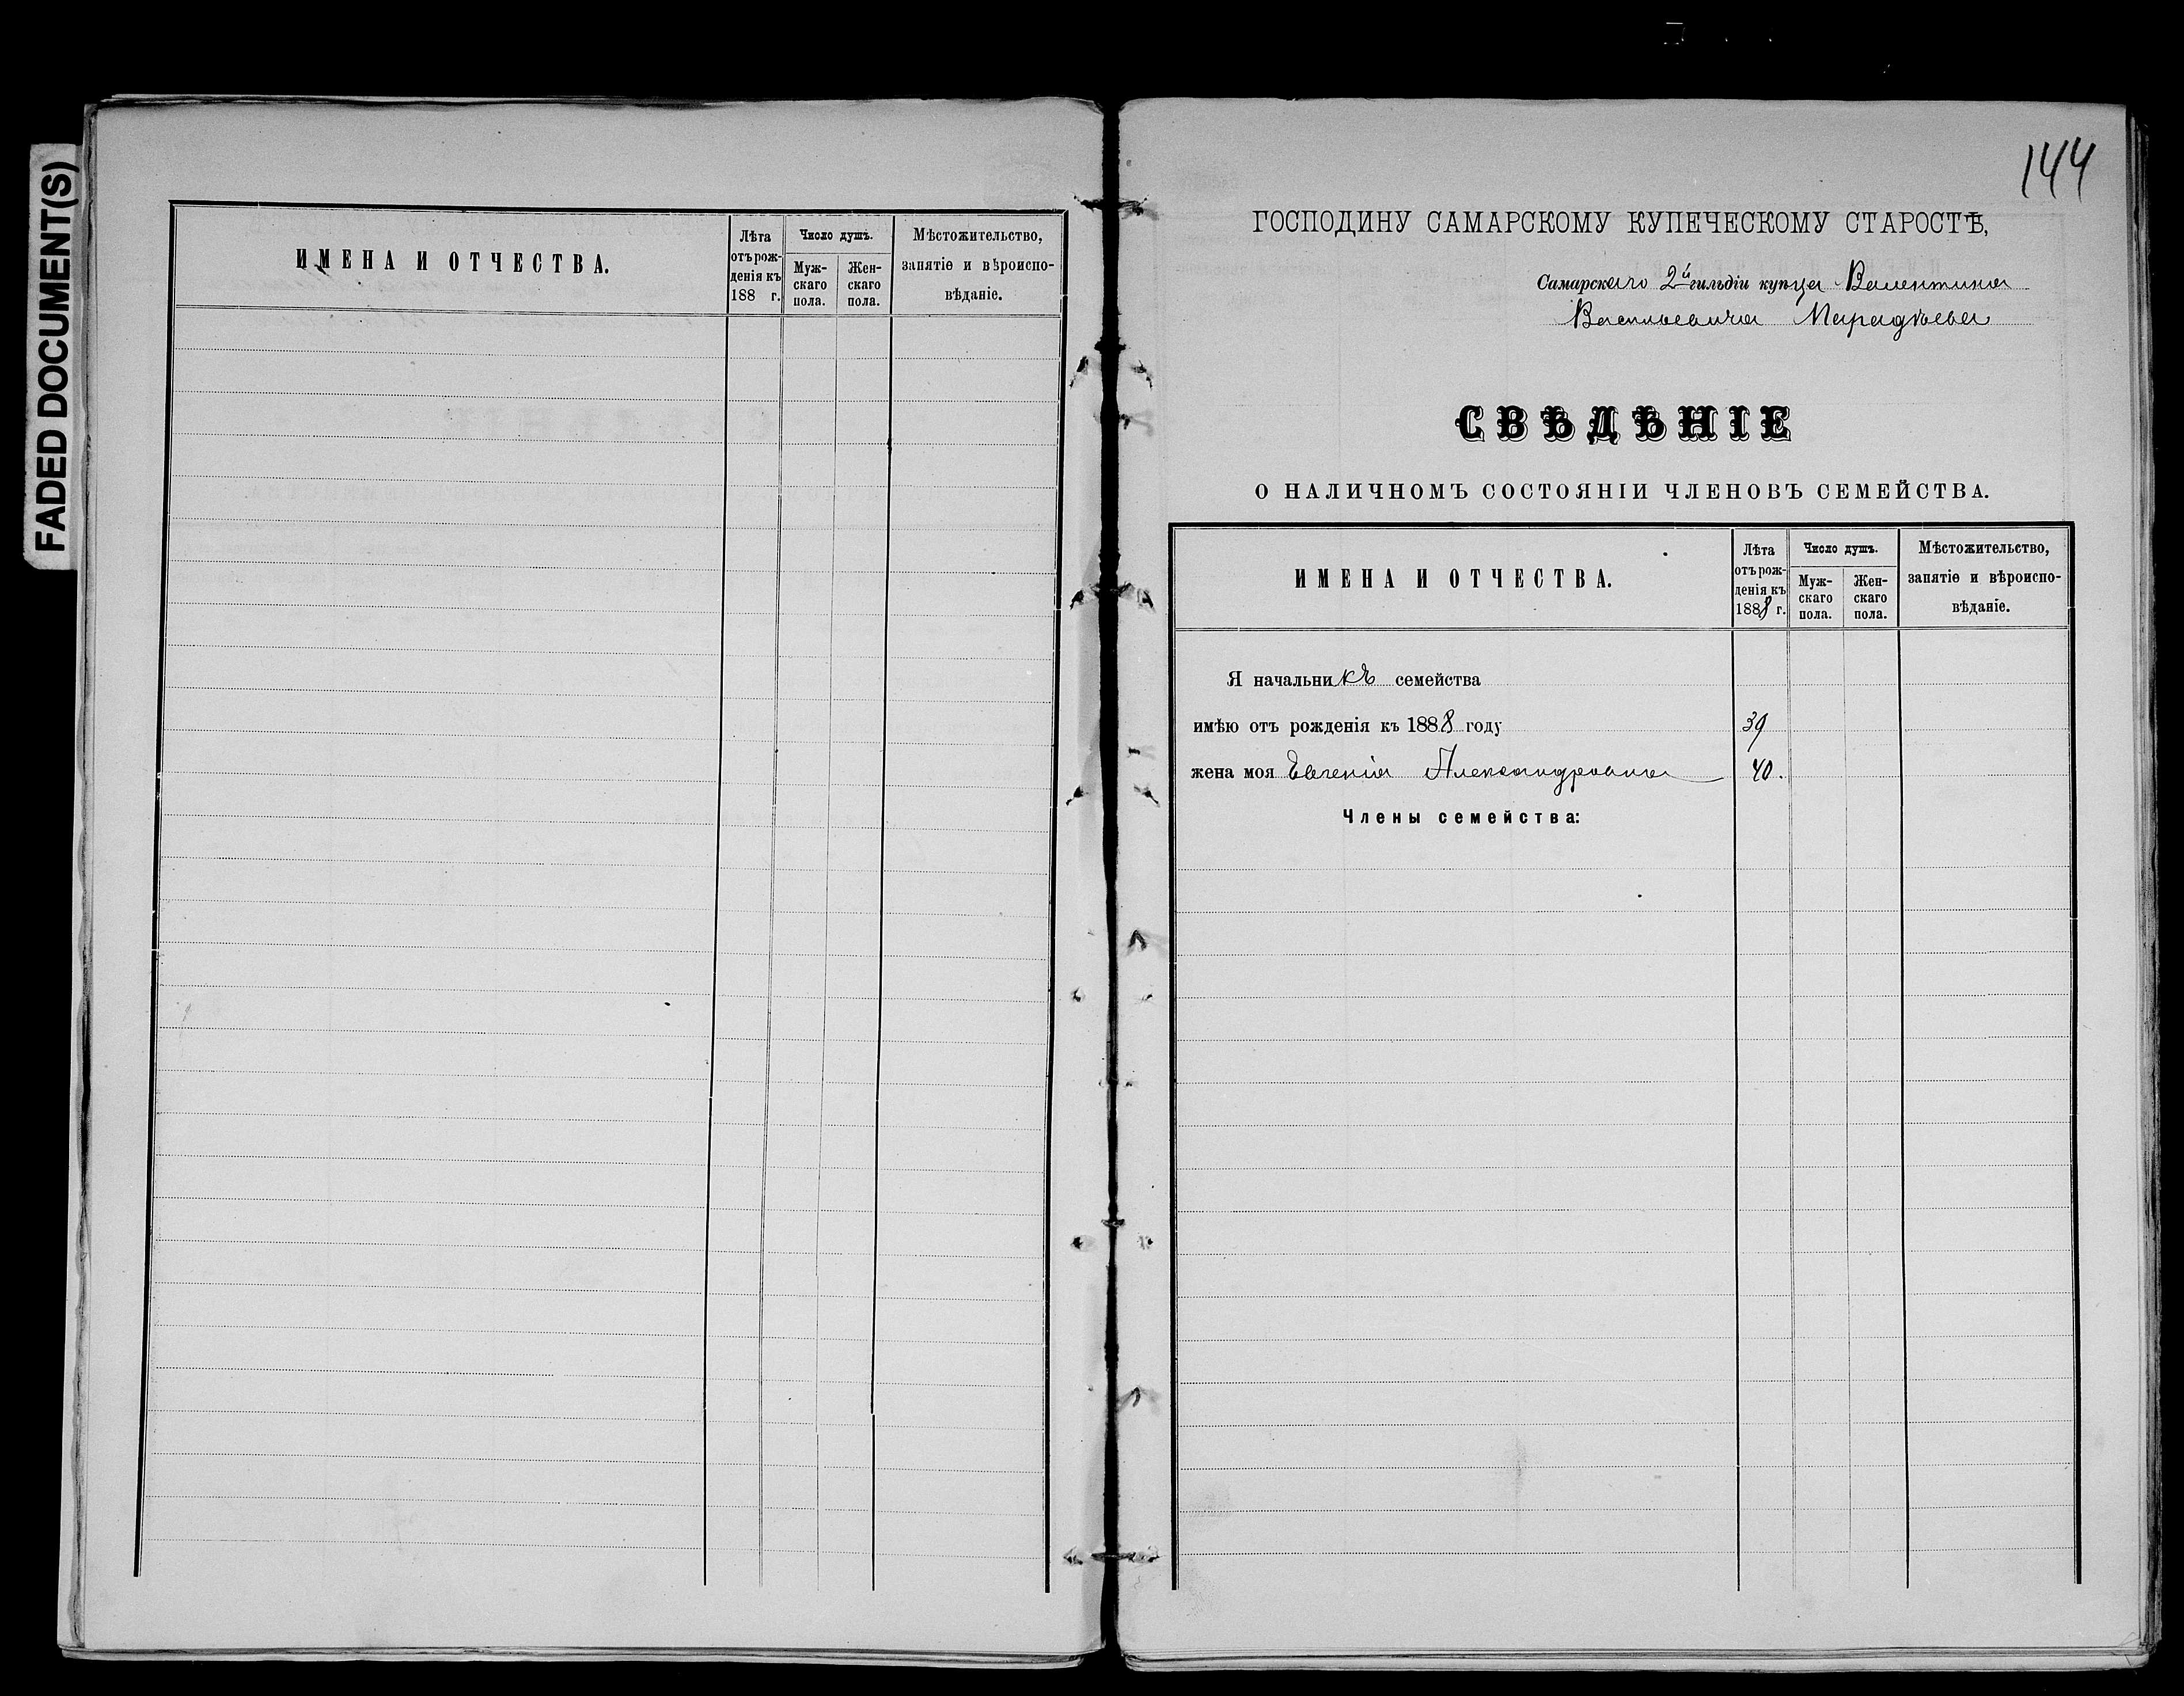 FADED DOCUMENT(S)
ИМЕНА И ОТЧЕСТВА.
Лѣта
отъ рож-
денія къ
188 г.
Число душъ.
Муж-
скаго
пола.
Жен-
скаго
пола.
Мѣстожительство,
занятіе и вѣроиспо-
вѣданіе.
144
ГОСПОДИНУ САМАРСКОМУ КУПЕЧЕСКОМУ СТАРОСТѢ,
Самарскаго 2й гильдіи купца Валентина
Васильевича
СВѢДѢНІЕ
О НАЛИЧНОМЪ СОСТОЯНІИ ЧЛЕНОВЪ СЕМЕЙСТВА.
ИМЕНА И ОТЧЕСТВА.
Лѣта
отъ рож-
денія къ
1888 г.
Число душъ.
Муж-
скаго
пола.
Жен-
скаго
пола.
Мѣстожительство,
занятіе и вѣроиспо-
вѣданіе.
Я начальникъ семейства
имѣю отъ рожденія къ 1888 году 39
жена моя Евгенія Александровна 40.
Члены семейства: